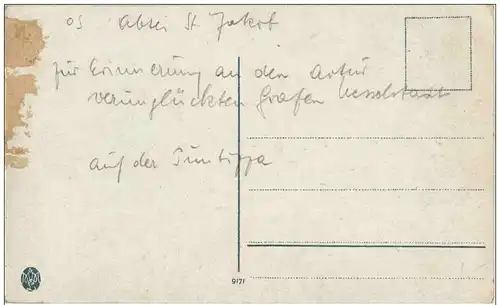 os Abtei St. Jakob
zur Erinnerung an den dort
verunglückten Grafen Kesselstatt
auf der
9171